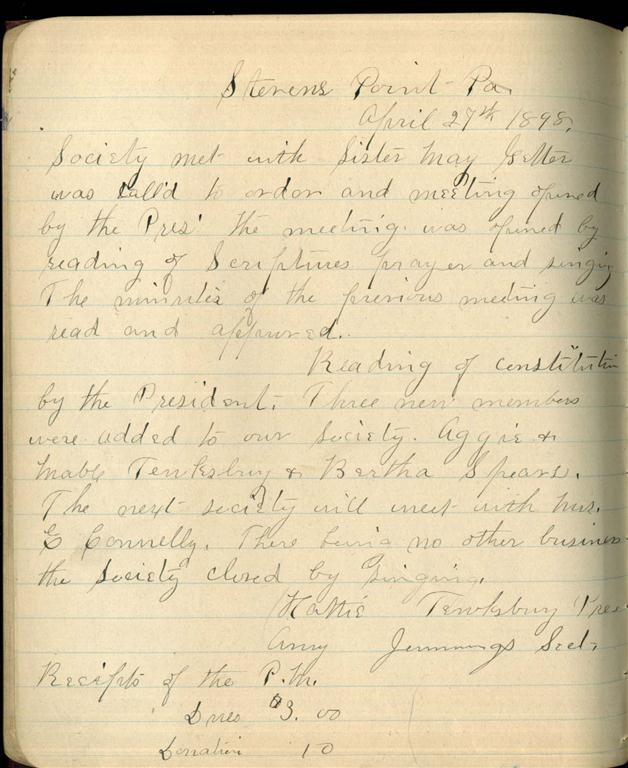 Stevens Point Pa.
April 27th 1898.
Society met with Sister May Getter
was call'd to order and meeting opened
by the Pres' the meeting was opened by
reading of Scriptures prayer and singing
The minutes of the previous meeting was
read and approved.
Reading of constitution
by the President. Three new members
were added to our society. Aggie &
Mable Tewksbury & Bertha Spears.
The next society will meet with Mrs.
E Connelly. There being no other business
the Society closed by singing.
Hattie Tewksbury Pres
Amy Jennings Sect.
Receipts of the P.M.
Dues $3.00
Donation 10